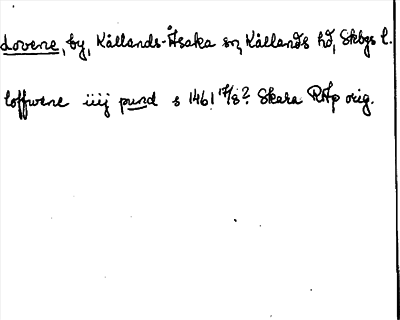 Lovene, by, Kållands-Åsaka sn, Kållands hd, Skbgs l.
loffwene iiij pund s 1461 17/8? Skara RAp orig.